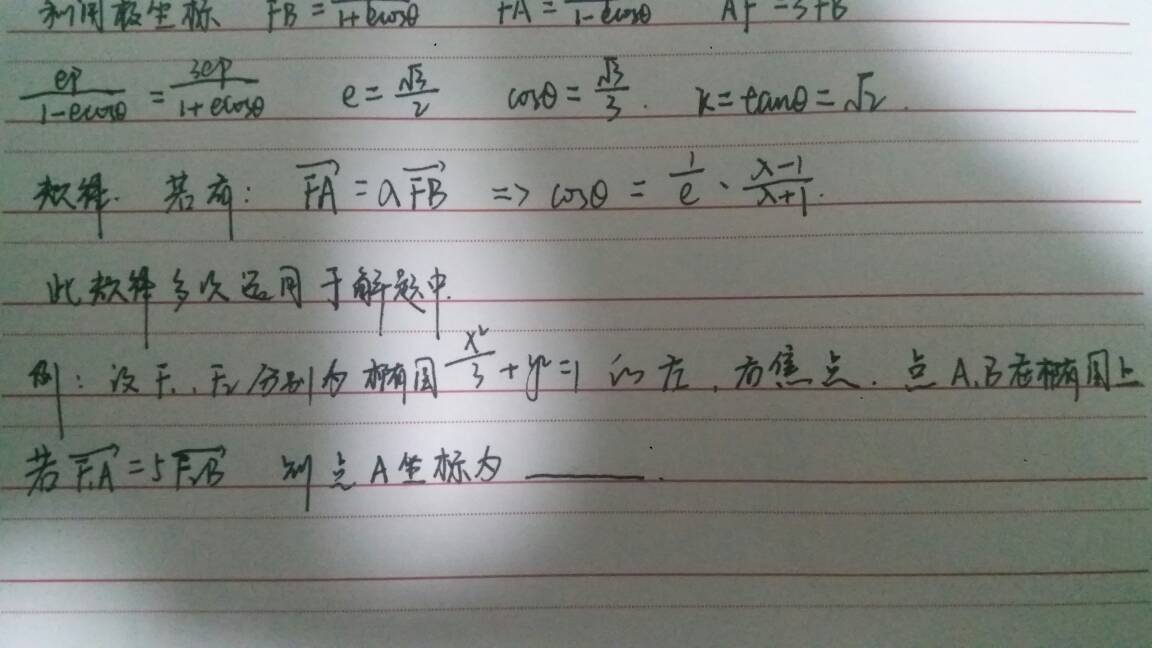 利用极坐标 FB = 1+ecosθ FA = 1-ecosθ AF = 3FB
ep/(1-ecosθ) = 3ep/(1+ecosθ) e = √3/2 cosθ = √3/3. k = tanθ = √2.
若有: FA = aFB => cosθ = 1/e · (λ-1)/(λ+1).
此 多次运用于解题中.
例: 设F₁、F₂分别为椭圆 x²/3 + y² = 1 的左、右焦点. 点A、B在椭圆上
若F₁A = 5F₂B 则点A坐标为 ______.